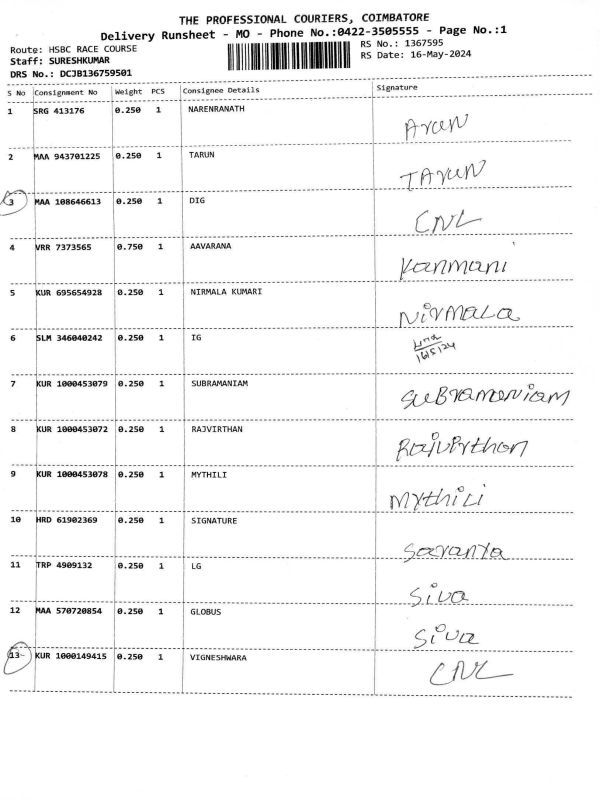 THE PROFESSIONAL COURIERS, COIMBATORE
Delivery Runsheet - MO - Phone No.:0422-3505555 - Page No.:1
Route: HSBC RACE COURSE
Staff: SURESHKUMAR
DRS No.: DCJB136759501
RS No.: 1367595
RS Date: 16-May-2024
S No Consignment No Weight PCS Consignee Details Signature
1 SRG 413176 0.250 1 NARENRANATH Arun
2 MAA 943701225 0.250 1 TARUN TARUN
3 MAA 108646613 0.250 1 DIG CNL
4 VRR 7373565 0.750 1 AAVARANA Kanmani
5 KUR 695654928 0.250 1 NIRMALA KUMARI NiRMALA
6 SLM 346040242 0.250 1 IG 16/5/24
7 KUR 1000453079 0.250 1 SUBRAMANIAM SUBRAMANIAM
8 KUR 1000453072 0.250 1 RAJVIRTHAN Rajvirthan
9 KUR 1000453078 0.250 1 MYTHILI Mythili
10 HRD 61902369 0.250 1 SIGNATURE Saranya
11 TRP 4909132 0.250 1 LG Siva
12 MAA 570720854 0.250 1 GLOBUS Siva
13 KUR 1000149415 0.250 1 VIGNESHWARA CNL